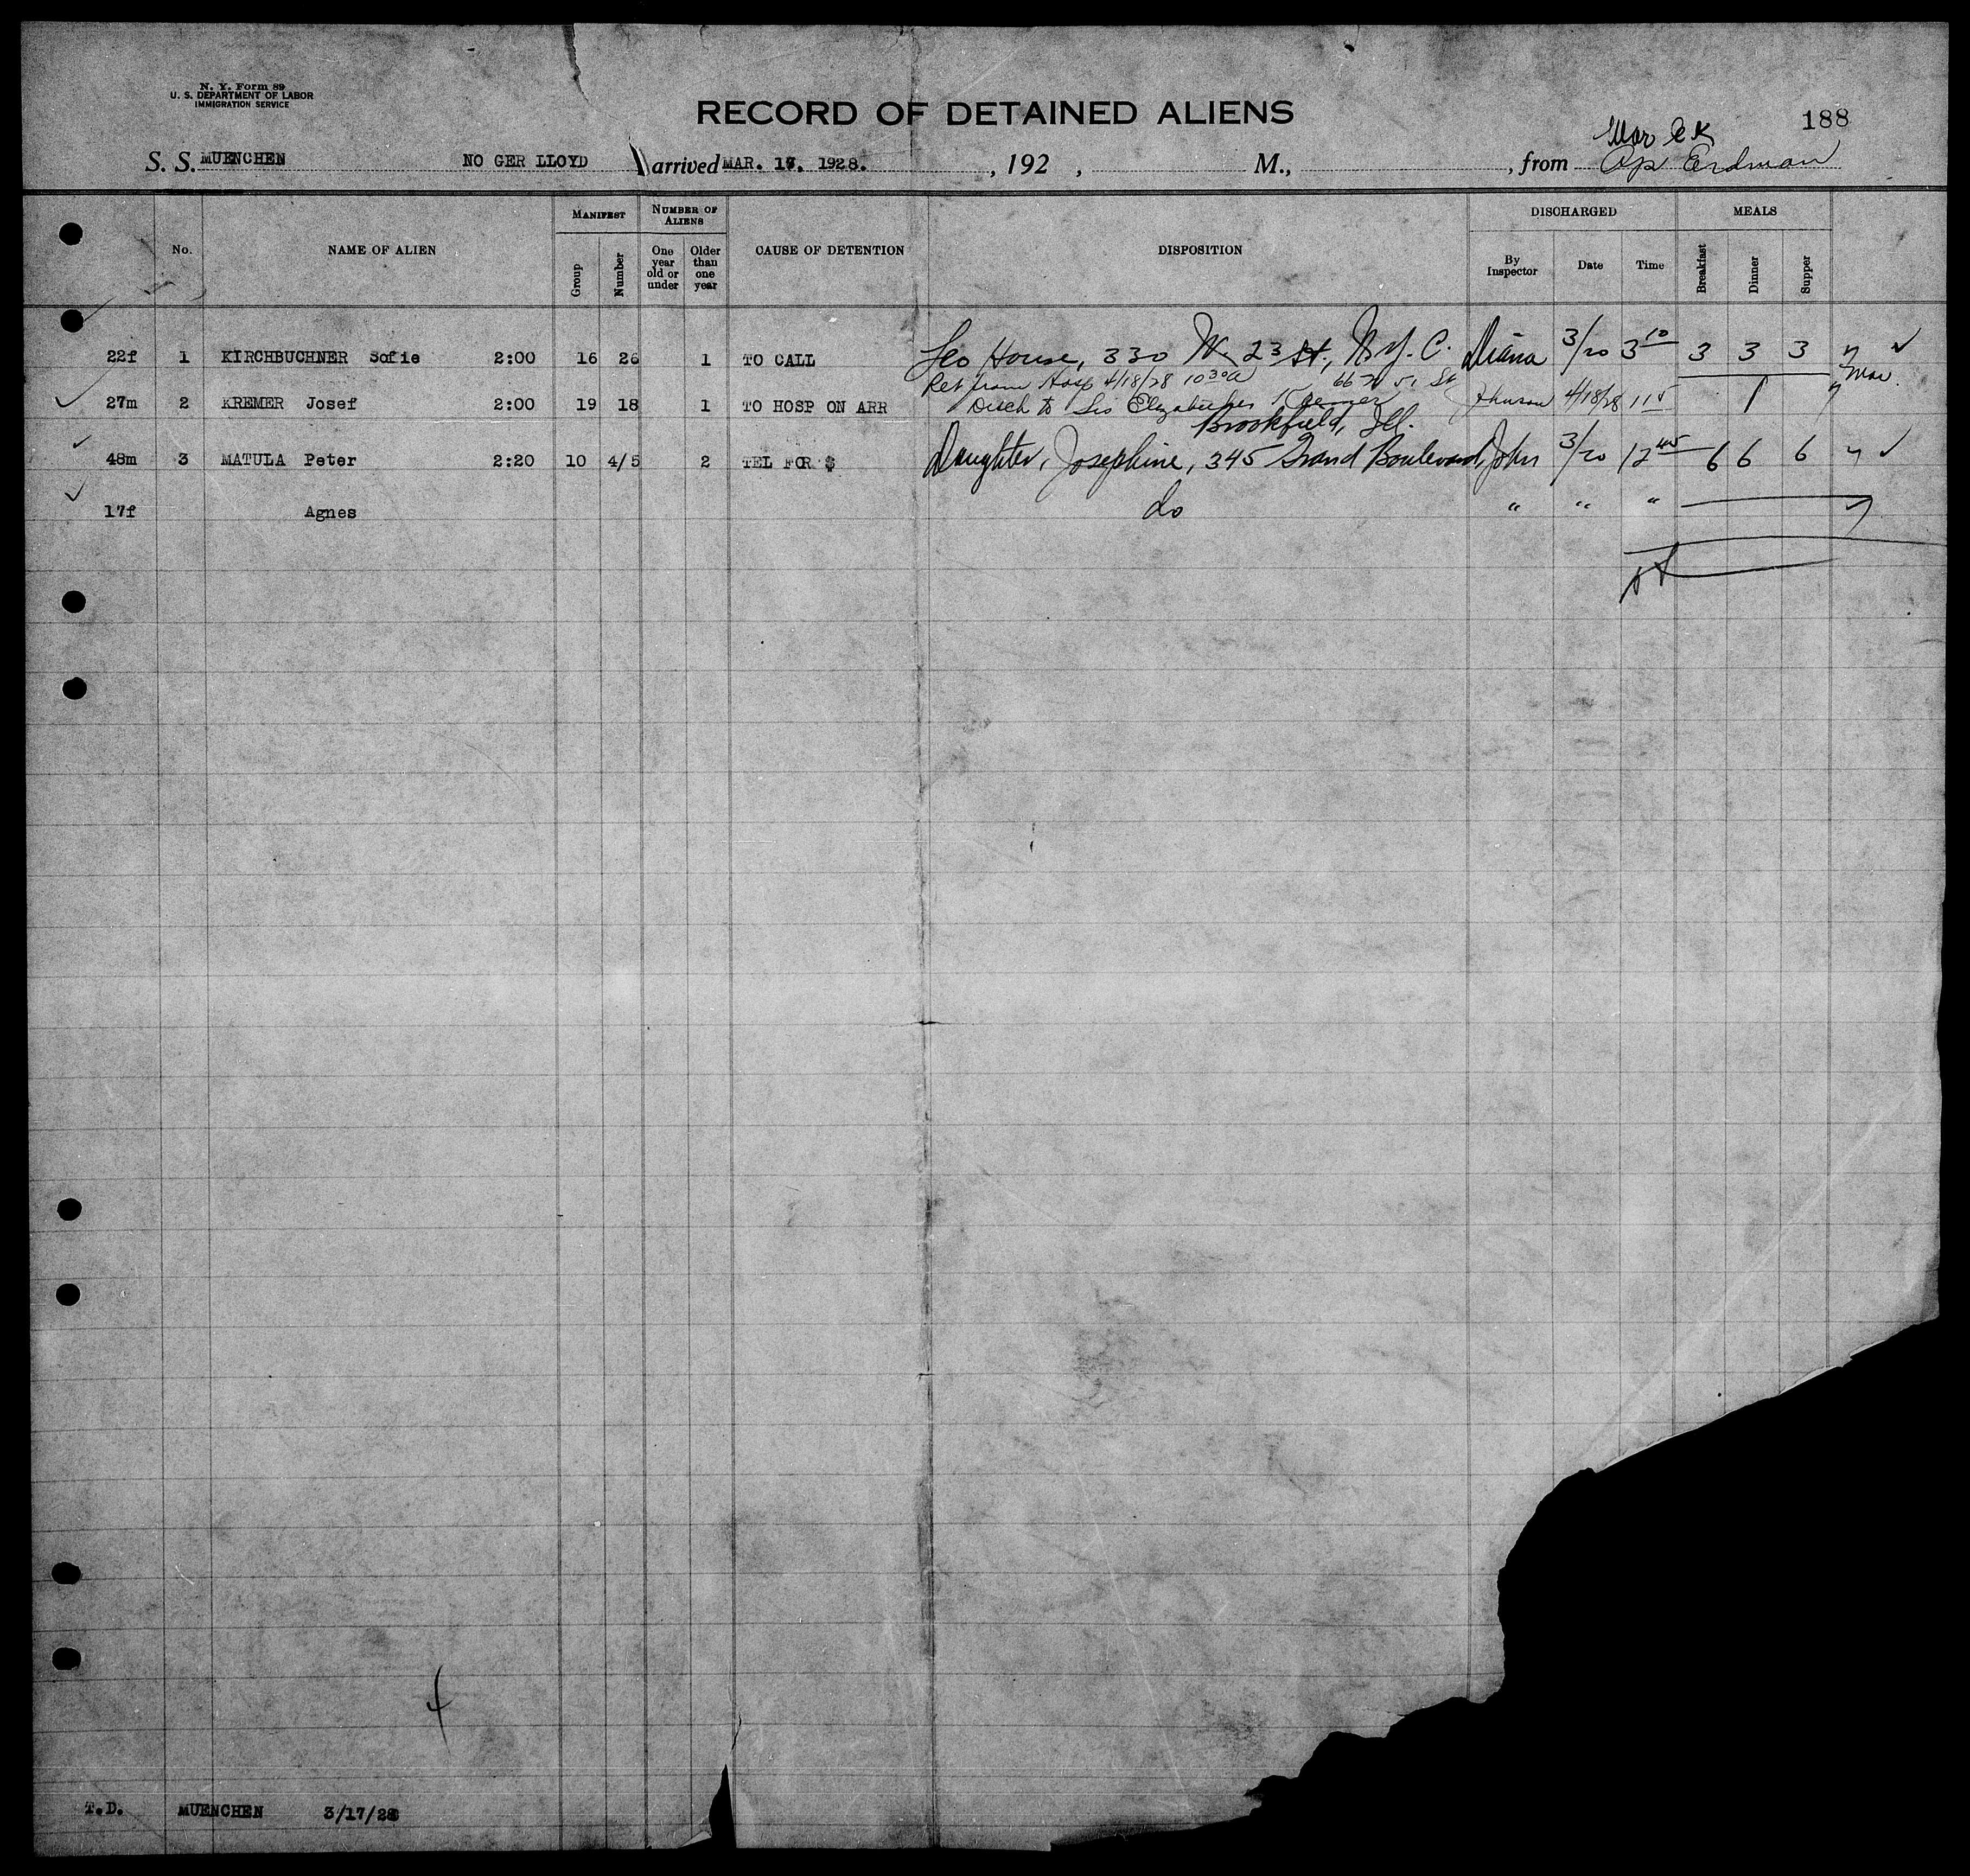 N. Y. Form 89
U. S. DEPARTMENT OF LABOR
IMMIGRATION SERVICE
RECORD OF DETAINED ALIENS
188
S. S. MUENCHEN NO GER LLOYD arrived MAR. 17. 1928. , 192 , M., , from Erdman
No. NAME OF ALIEN MANIFEST Group Number NUMBER OF ALIENS One year old or under Older than one year CAUSE OF DETENTION DISPOSITION DISCHARGED By Inspector Date Time MEALS Breakfast Dinner Supper
22f 1 KIRCHBUCHNER Sofie 2:00 16 26 1 TO CALL Leo House, 330 W. 23 St., N.Y.C. Diana 3/20 3 10 3 3 3
Ret from Hosp 4/18/28 10 30 a
27m 2 KREMER Josef 2:00 19 18 1 TO HOSP ON ARR Disch to Sis Elizabeth Kremer 4/18/28 1
Brookfield, Ill.
48m 3 MATULA Peter 2:20 10 4/5 2 TEL FOR $ Daughter, Josephine, 345 Grand Boulevard, John 3/20 12 45 6 6 6
17f Agnes do " " "
4
T.D. MUENCHEN 3/17/28